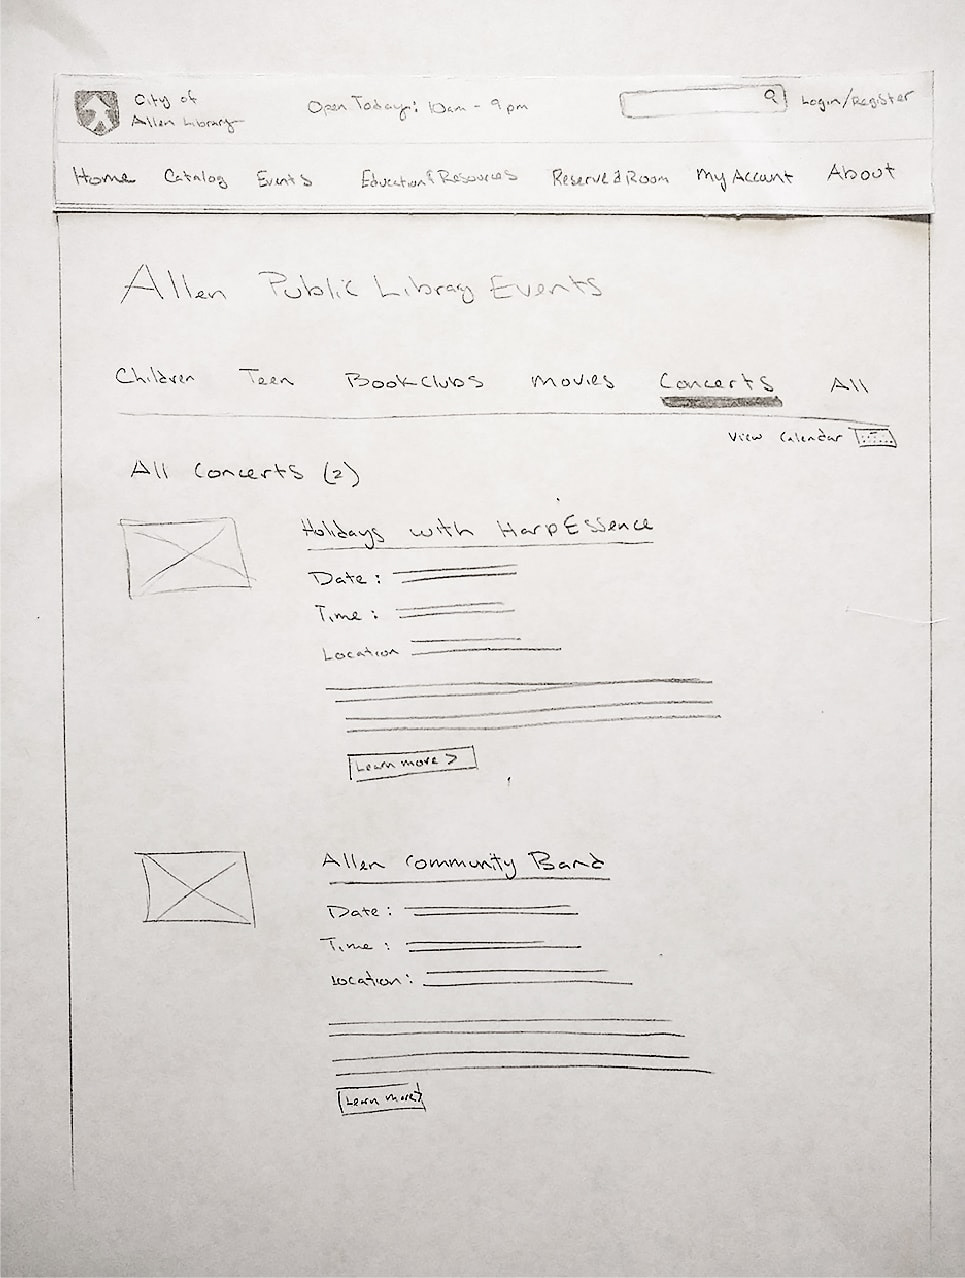 City of
Allen Library
Open Today: 10am - 9pm
Login/Register
Home Catalog Events Education & Resources Reserve a Room My Account About
Allen Public Library Events
Children Teen Book Clubs Movies Concerts All
View Calendar
All Concerts (2)
Holidays with HarpEssence
Date:
Time:
Location
Learn more >
Allen Community Band
Date:
Time:
Location:
Learn more >